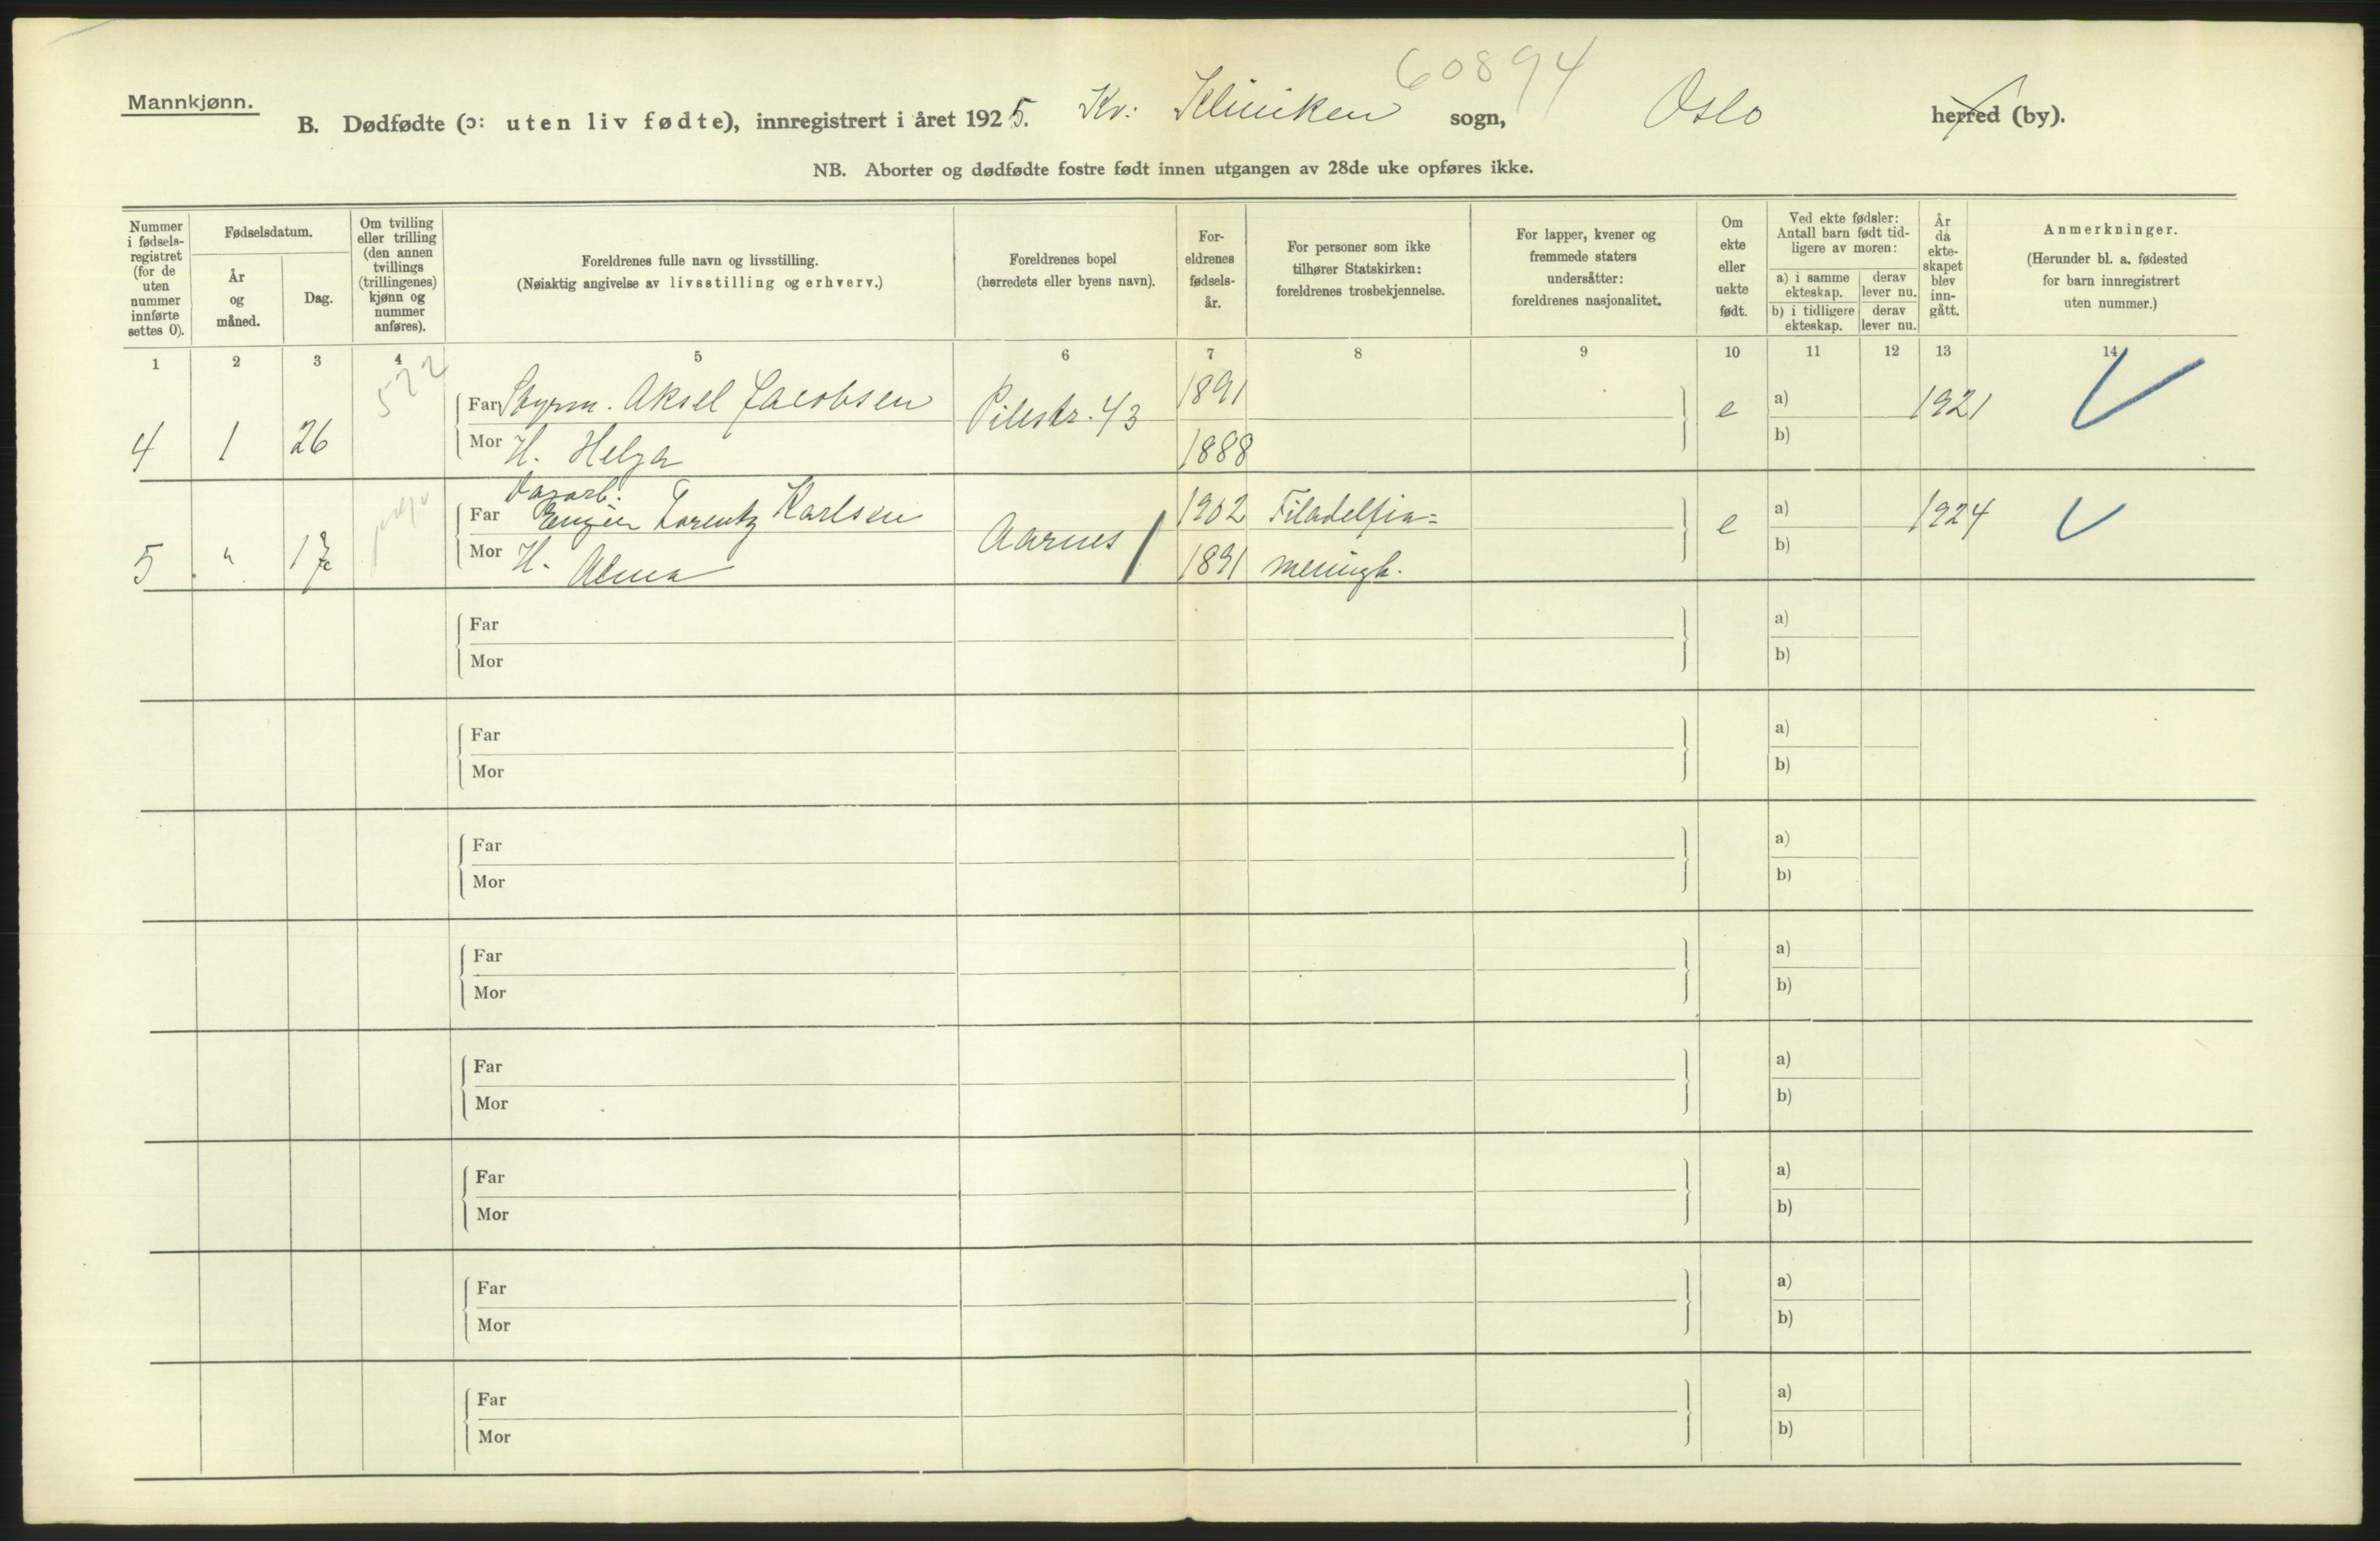 60894
Mannkjønn.
B. Dødfødte (ɔ: uten liv fødte), innregistrert i året 1925. Kv: Kliniken sogn, Oslo herred (by).
NB. Aborter og dødfødte fostre født innen utgangen av 28de uke opføres ikke.
Nummer
i fødsels-
registret
(for de
uten
nummer
innførte
settes 0).
Fødselsdatum.
År
og
måned.
Dag.
Om tvilling
eller trilling
(den annen
tvillings
(trillingenes)
kjønn og
nummer
anføres).
Foreldrenes fulle navn og livsstilling.
(Nøiaktig angivelse av livsstilling og erhverv.)
Foreldrenes bopel
(herredets eller byens navn).
For-
eldrenes
fødsels-
år.
For personer som ikke
tilhører Statskirken:
foreldrenes trosbekjennelse.
For lapper, kvener og
fremmede staters
undersåtter:
foreldrenes nasjonalitet.
Om
ekte
eller
uekte
født.
Ved ekte fødsler:
Antall barn født tid-
ligere av moren:
a) i samme
ekteskap.
derav
lever nu.
b) i tidligere
ekteskap.
derav
lever nu.
År
da
ekte-
skapet
blev
inn-
gått.
Anmerkninger.
(Herunder bl. a. fødested
for barn innregistrert
uten nummer.)
1 2 3 4 5 6 7 8 9 10 11 12 13 14
522
Far Styrm. Aksel Jacobsen Pilestr. 43 1891 e a) 1921
4 1 26 Mor H. Helga 1888 b)
Far Karlsen Aarnes 1902 Filadelfia= e a) 1924
5 " 17 Mor H. Alma 1891 menigh. b)
Far a)
Mor b)
Far a)
Mor b)
Far a)
Mor b)
Far a)
Mor b)
Far a)
Mor b)
Far a)
Mor b)
Far a)
Mor b)
Far a)
Mor b)